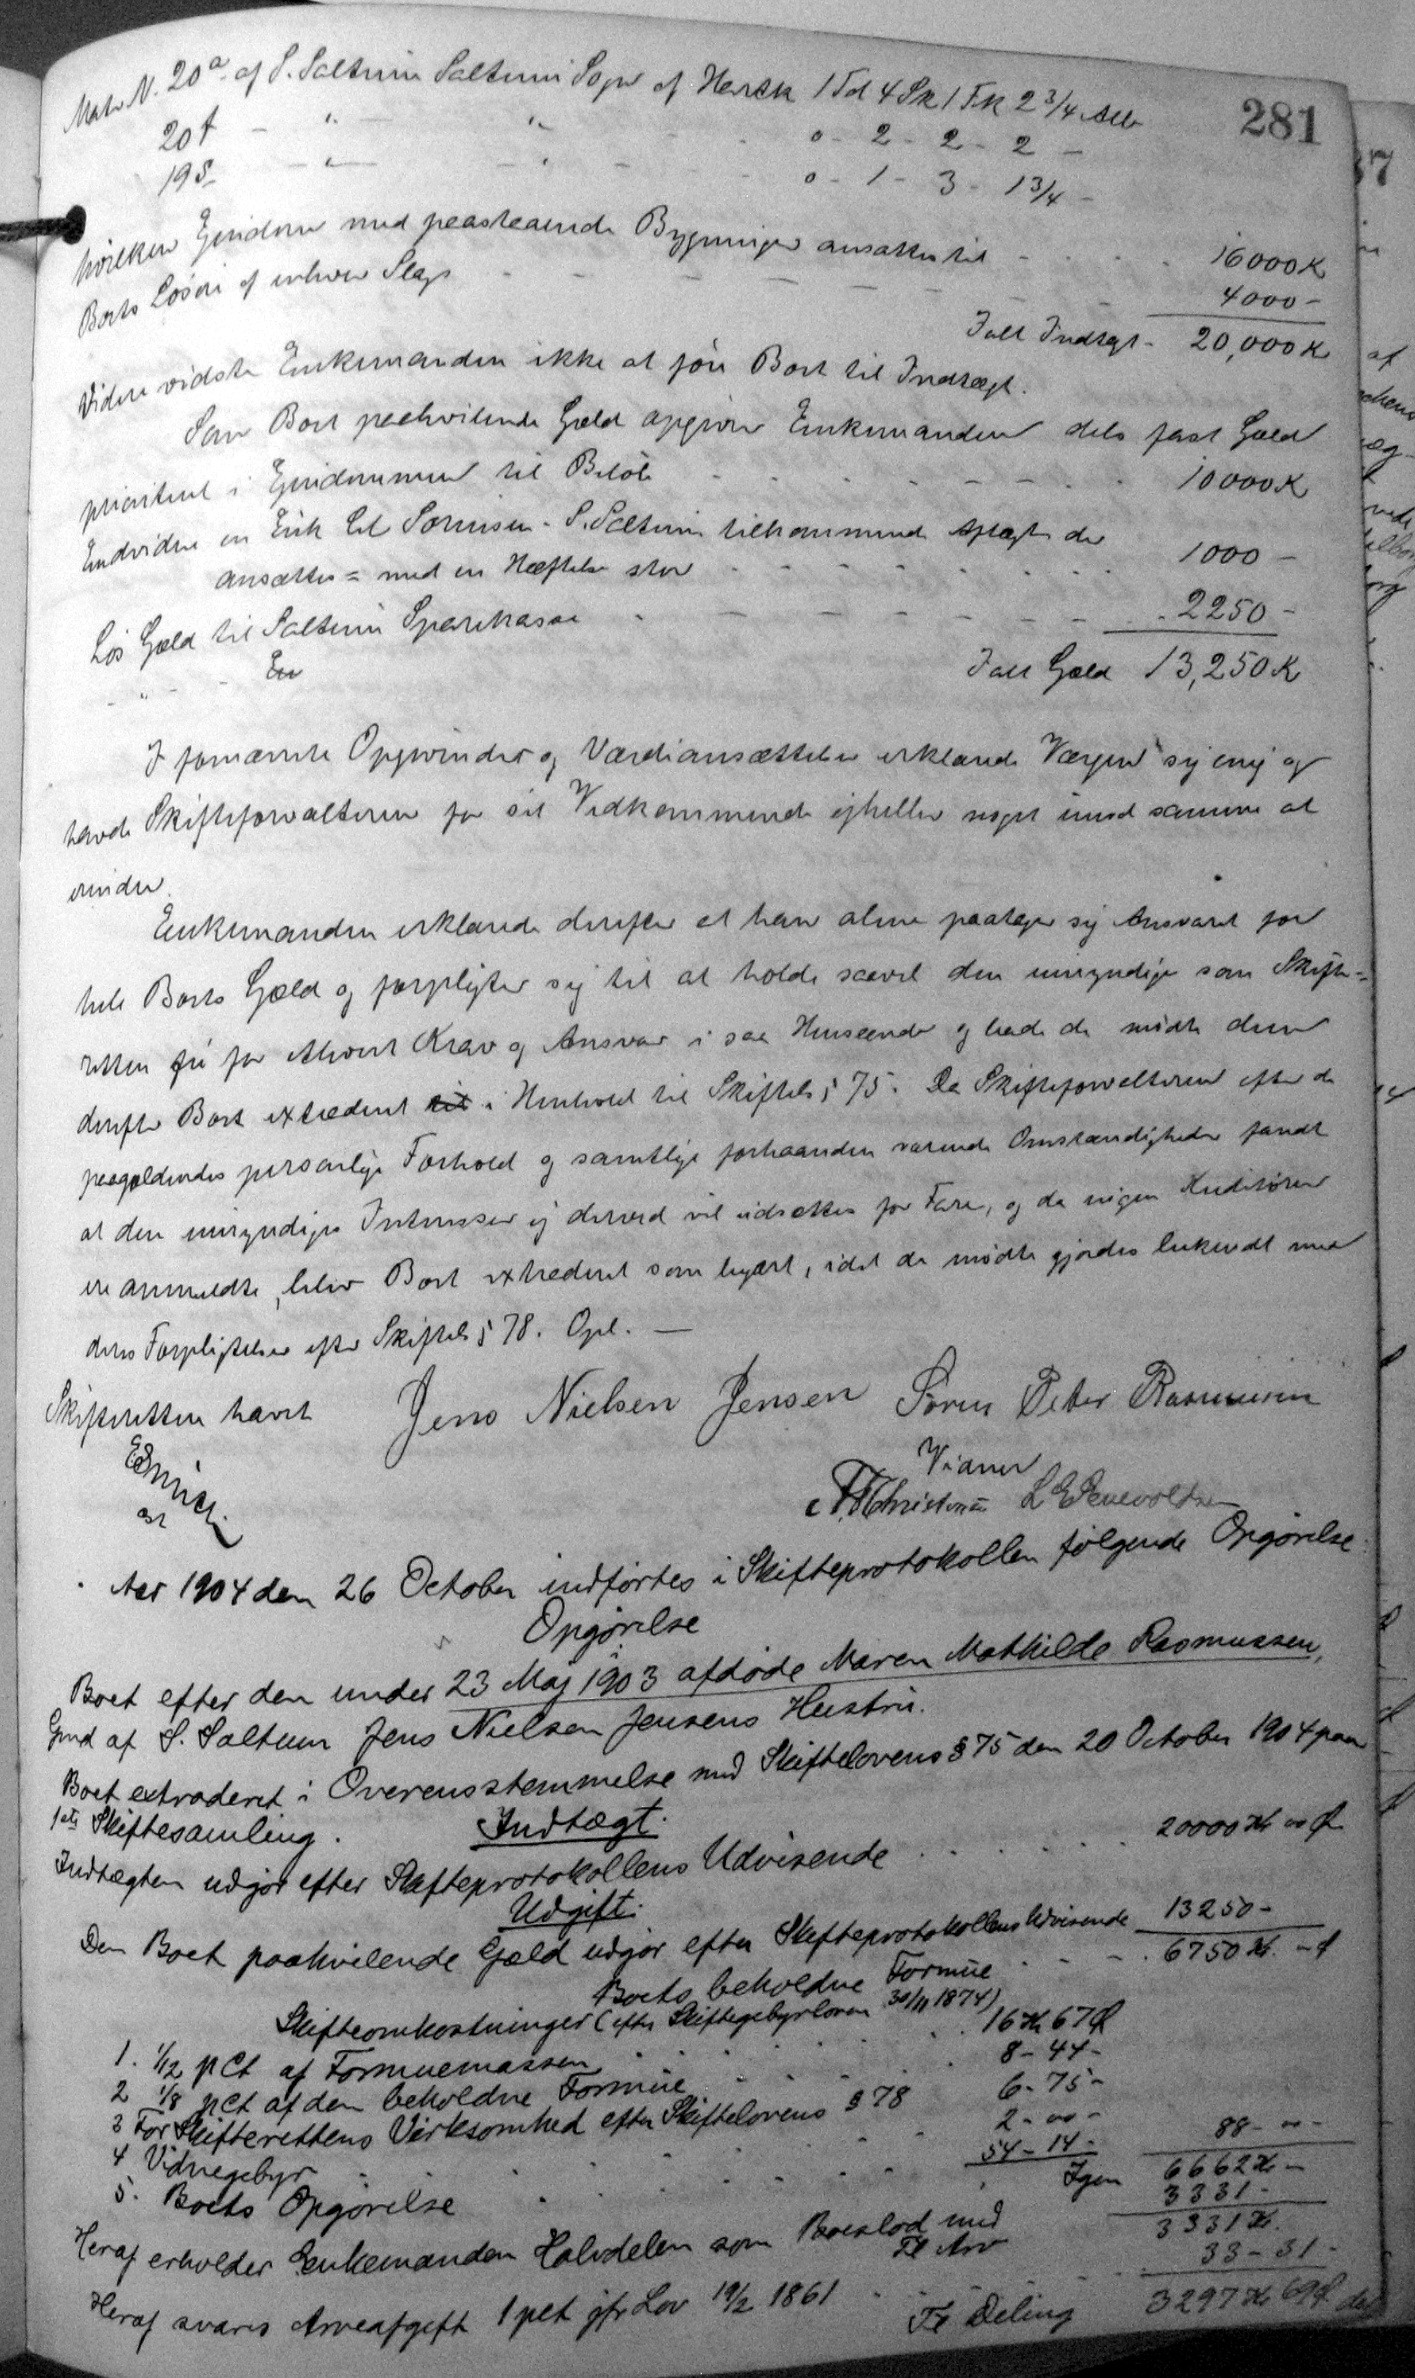 281
Matr N. 20a af S. Saltum Saltum Sogn af Hartk 1 Td 4 Sk 1 Fk 2 3/4 Alb
20f - " - " - 0 - 2 - 2 - 2 -
19s - " - " - 0 - 1 - 3 - 1 3/4 -
hvilken Ejendom med paastaaende Bygninger ansattes til 16000 K
Boets Løsøre af enhver Slags 4000 -
Ialt Indtægt - 20,000 K
Videre vidste Enkemanden ikke atføre Boet til Indtægt.
Som Boet paahvilende Gæld opgiver Enkemanden dels fast Gæld
prioriteret i Ejendommen til Beløb 10000 K
Endvidere en Enke Sørensen - S. Saltum tilkommende Aftægt der
ansættes = med en Hæftelse stor 1000 -
Løs Gæld til Saltum Sparekasse 2250 -
" - - En
Ialt Gæld 13,250 K
I fornævnte Opgivender og Værdiansættelser erklærede Værgen sig enig og
havde Skifteforvalteren for sit Vedkommende ejheller noget imod samme at
erindre.
Enkemanden erklærede derefter at han alene paatager sig Ansvaret for
hele Boets Gæld og forpligter sig til at holde saavel den umyndige som Skifte-
retten fri for ethvert Krav og Ansvar i saa Henseende og bad de mødte den
derefter Boet extraderet til i Henhold til Skiftels § 75. Da Skifteforvalteren efter de
paagældendes personlige Forhold og samtlige forhaanden værende Omstændigheder fandt
at den umyndiges Interesser ej derved vil udsættes for Fare, og da ingen Kreditorer
ere anmeldte, blev Boet extraderet som begært, idet de mødte gjordes bekendt med
deres Forpligtelser efter Skiftels § 78. Opl. -
Skifteretten hævet Jens Nielsen Jensen Søren Peter Rasmussen
Vidner
Christensen L E Stenevoldsen
Aar 1904 den 26 October indførtes i Skifteprotokollen følgende Opgørelse
Opgørelse
Boet efter den under 23 Maj 1903 afdøde Maren Mathilde Rasmussen,
Gmd af S. Saltum Jens Nielsen Jensens Hustru.
Boet extraderet i Overensstemmelse med Skiftelovens § 75 den 20 October 1904 paa
1ste Skiftesamling.
Indtægt.
Indtægten udgør efter Skifteprotokollens Udvisende 20000 Kr 00 Ø
Udgift.
Den Boet paahvilende Gæld udgør efter Skifteprotokollens Udvisende 13250 -
Boets beholdne Formue 6750 Kr. - Ø
Skifteomkostninger (efter Skiftegebyrloven 30/11 1874)
1. 1/12 pCt af Formuemassen 16 Kr 67 Ø
2 1/8 pCt af den beholdne Formue 8 - 44 -
3 For Skifterettens Virksomhed efter Skiftelovens § 78 6 - 75 -
4 Vidnegebyr 2 - 00 -
5. Boets Opgørelse 54 - 14 - 88 - 00 -
Igen 6662 Kr -
Heraf erholder Enkemanden Halvdelen som Boeslod med 3331 -
Til Arv 3331 Kr.
Heraf svares Arveafgift 1 pct jfr Lov 19/2 1861 33 - 31 -
Til Deling 3297 Kr 69 Ø